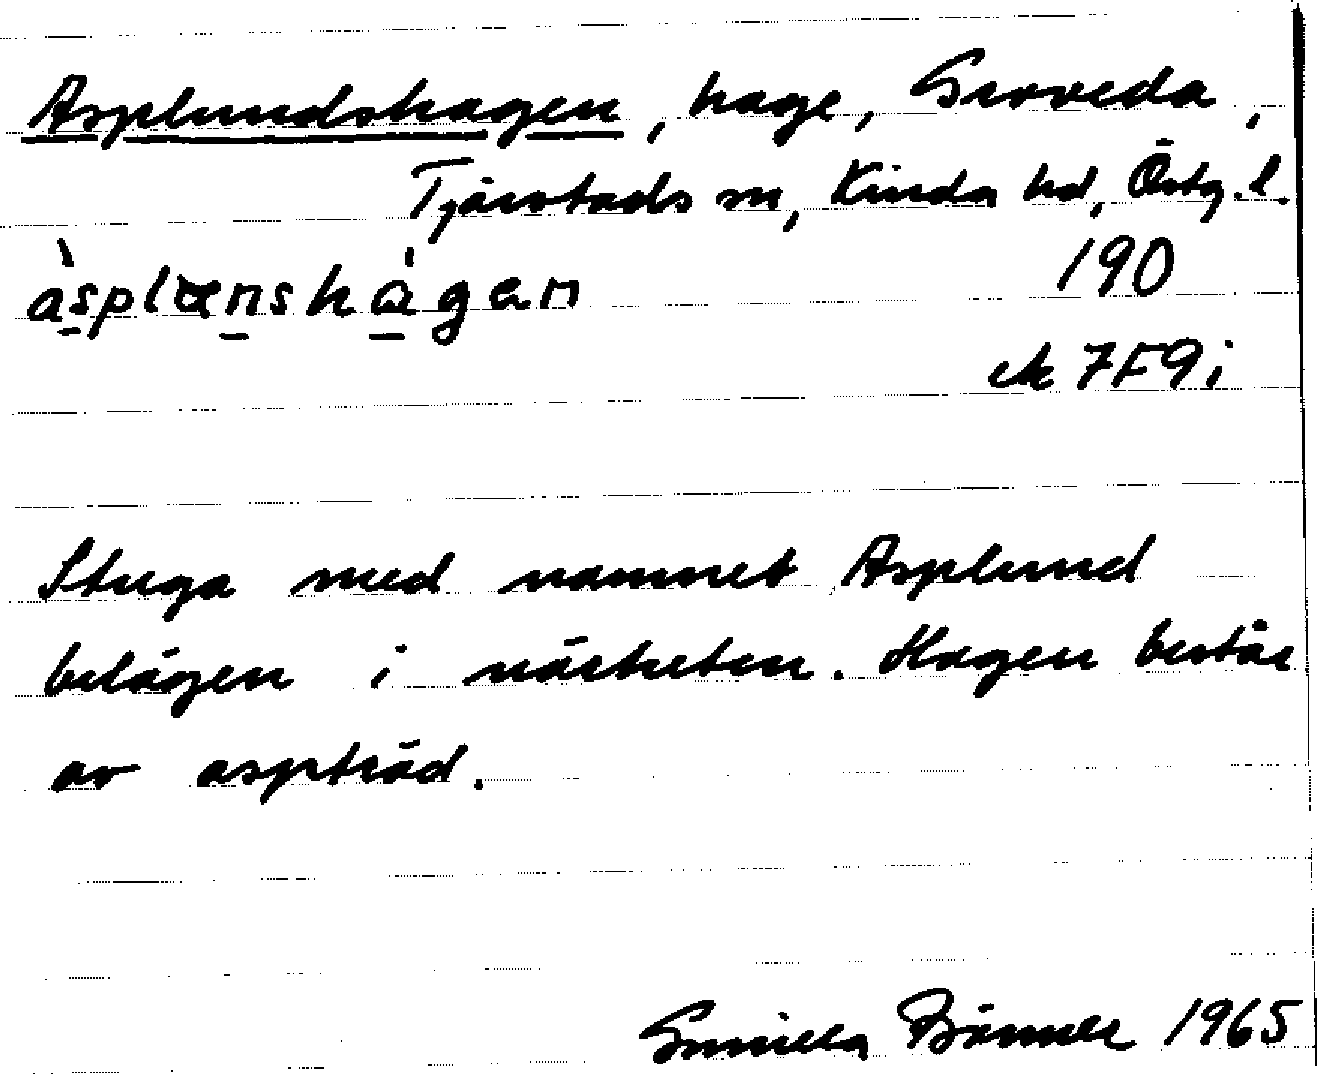 Asplundshagen, hage, Groveda,
Tjärstads sn, Kinda hd, Östg.l.
àsplɯnshágen 190
ek 7F9i
Stuga med namnet Asplund
belägen i närheten. Hagen består
av aspträd.
Gunilla 1965